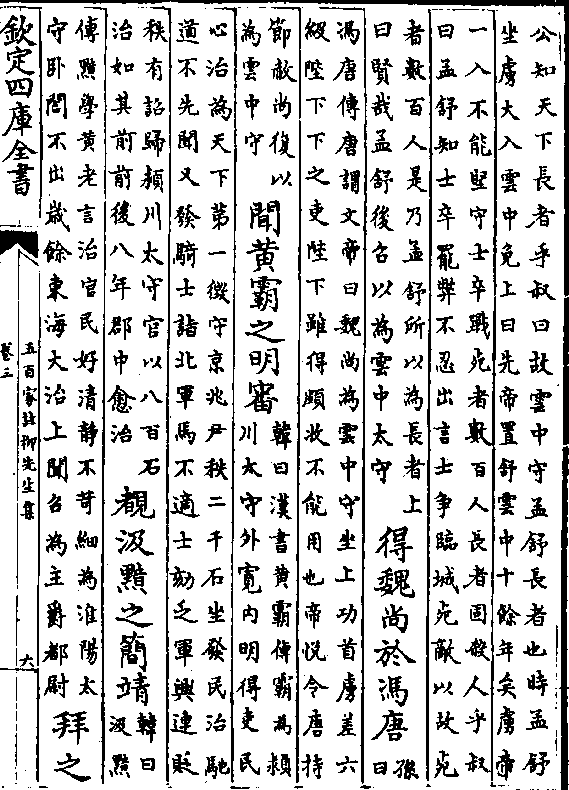 公知天下長者乎叔曰故雲中守孟舒長者也時孟舒
坐虜大入雲中免上曰先帝置舒雲中十餘年矣虜帝
一入不能堅守士卒戰死者數百人長者固殺人乎叔
曰孟舒知士卒罷弊不忍出言士爭臨城死敵以故死
者數百人是乃孟舒所以為長者上
曰賢哉孟舒後召以為雲中太守
得魏尚於馮唐
孫
曰
馮唐傳唐謂文帝曰魏尚為雲中守坐上功首虜差六
級陛下下之吏陛下雖得頗牧不能用也帝悅令唐持
節赦尚復以
為雲中守
聞黃霸之明審
韓曰漢書黃霸傳霸為潁
川太守外寬內明得吏民
心治為天下第一徵守京兆尹秩二千石坐發民治馳
道不先聞又發騎士詣北軍馬不適士劾乏軍興連貶
秩有詔歸潁川太守官以八百石
治如其前前後八年郡中愈治
覩汲黯之簡靖
韓曰
汲黯
傳黯學黃老言治官民好清静不苛細為淮陽太
守卧閤不出歲餘東海大治上聞召為主爵都尉
拜之
欽定四庫全書
五百家註柳先生集
卷三
六